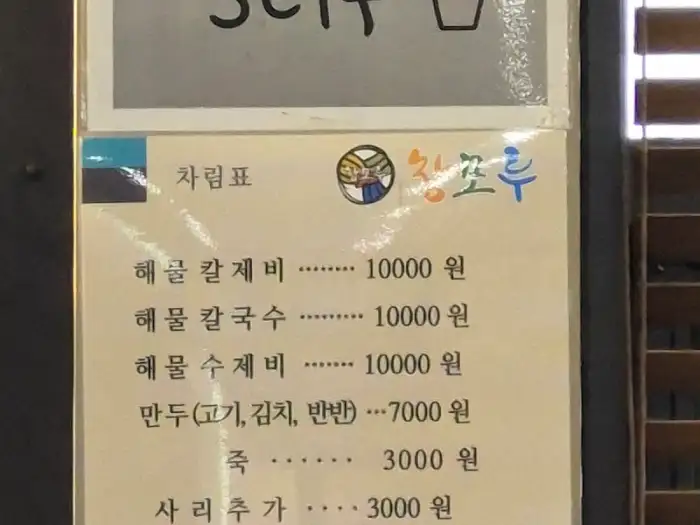 셀프
차림표 창포루
해물칼제비 ········ 10000 원
해물칼국수 ········· 10000 원
해물수제비 ······· 10000 원
만두(고기,김치, 반반) ···7000 원
죽 ······ 3000 원
사리추가 ····3000 원